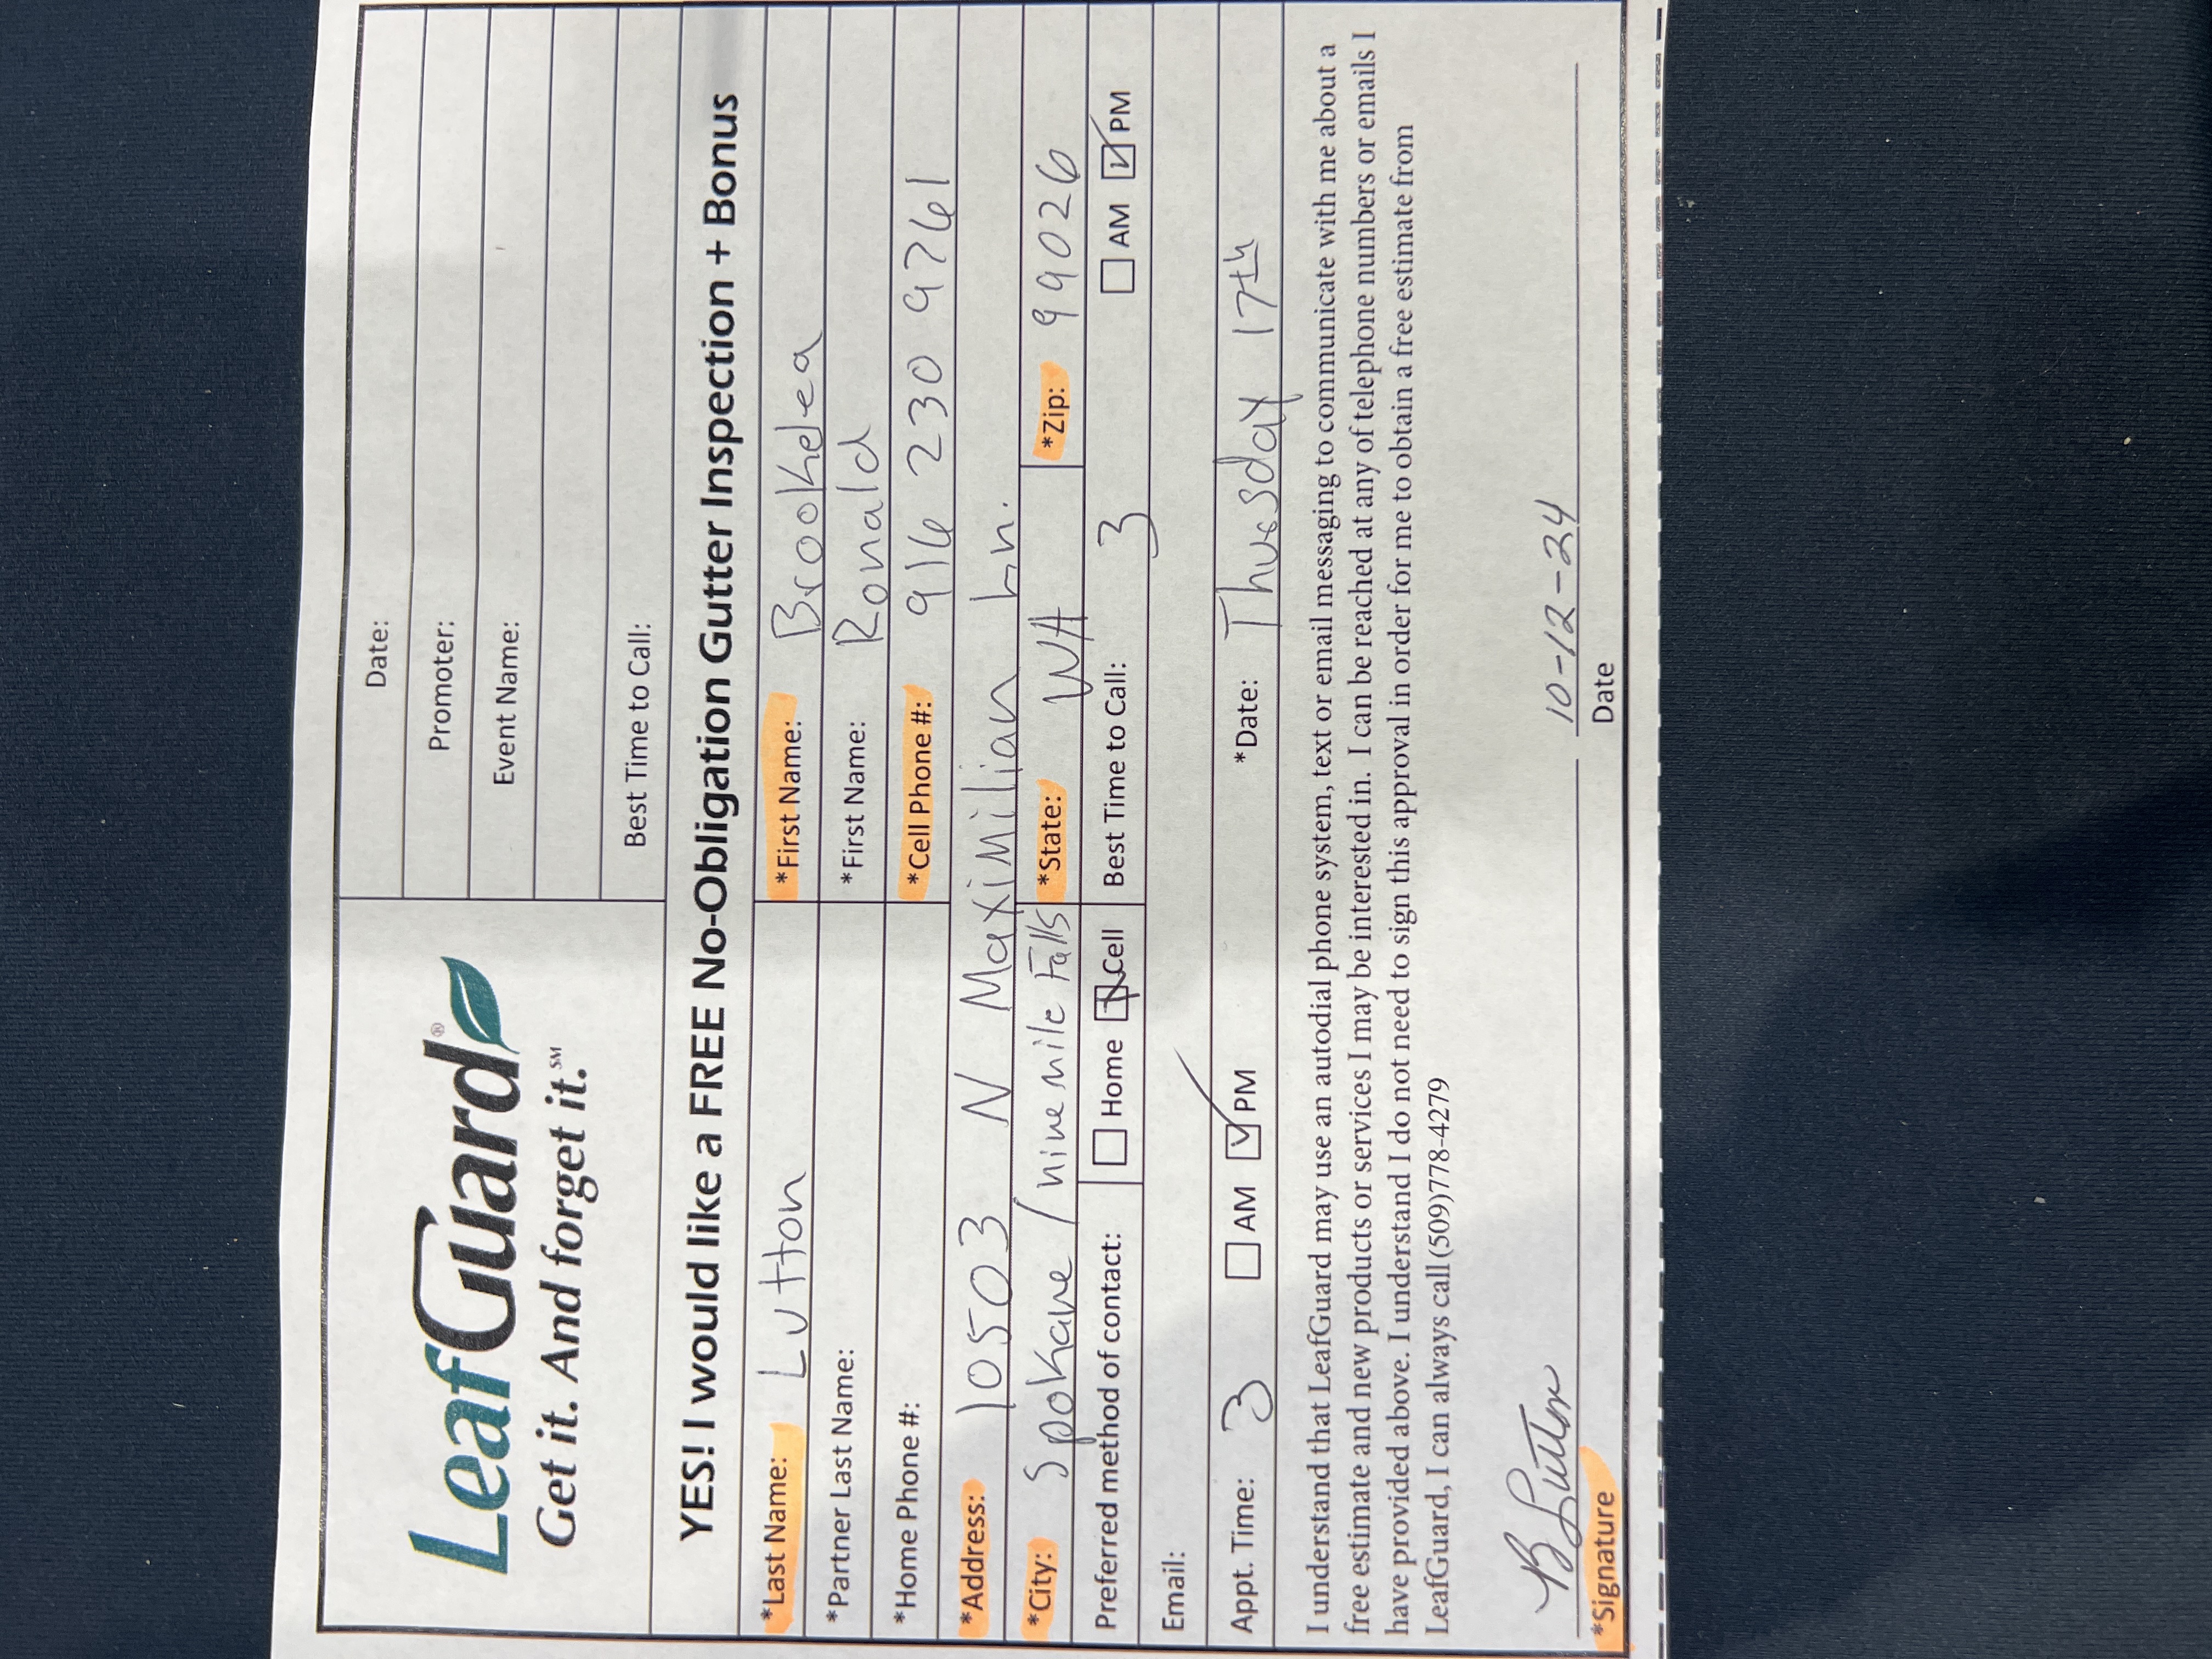 LeafGuard®
Get it. And forget it.℠
Date:
Promoter:
Event Name:
Best Time to Call:
YES! I would like a FREE No-Obligation Gutter Inspection + Bonus
*Last Name: Lutton *First Name: Brookelea
*Partner Last Name: *First Name: Ronald
*Home Phone #: *Cell Phone #: 916 230 9761
*Address: 10503 N Maximilian Ln.
*City: Spokane / nine mile Falls *State: WA *Zip: 99026
Preferred method of contact: Home Cell Best Time to Call: 3 AM PM
Email:
Appt. Time: 3 AM PM *Date: Thursday 17th
I understand that LeafGuard may use an autodial phone system, text or email messaging to communicate with me about a
free estimate and new products or services I may be interested in. I can be reached at any of telephone numbers or emails I
have provided above. I understand I do not need to sign this approval in order for me to obtain a free estimate from
LeafGuard, I can always call (509)778-4279
B Lutton 10-12-24
*Signature Date